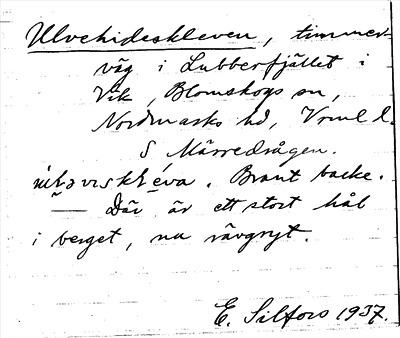 Ulvehideskleven, timmer-
väg i Lubberfjället i
Vik, Blomskogs sn,
Nordmarks hd, Vrml l.
S Märredrågen.
Brant backe.
— Där är ett stort hål
i berget, nu rävgryt.
E. Silfors 1937.